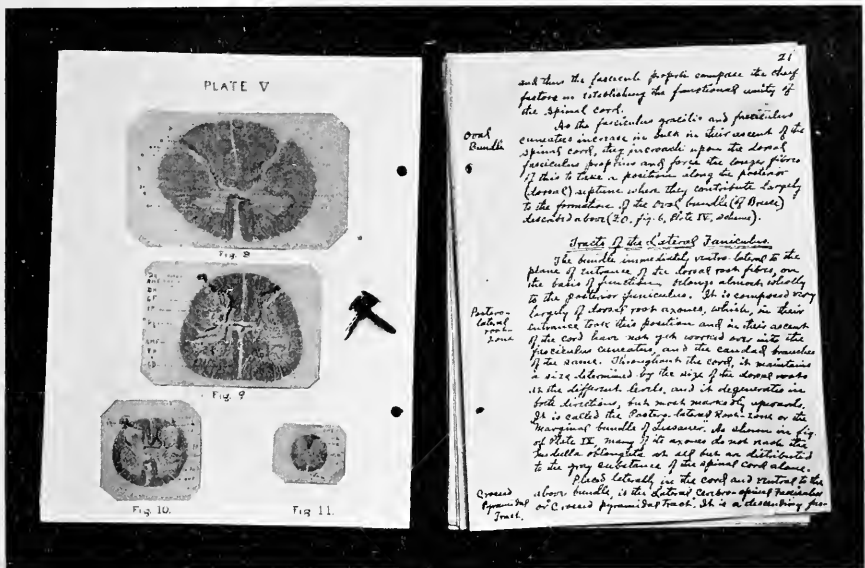 PLATE V
Fig. 8
Fig. 9
Fig. 10.
Fig. 11.
21
and thus the fasciculi proprii compose the chief
factors in establishing the functional unity of
the spinal cord.
Oval
Bundle
As the fasciculus gracilis and fasciculus
cuneatus increase in bulk in their ascent of the
spinal cord, they incroach upon the dorsal
fasciculus proprius and force the longer fibres
of this to take a position along the posterior
(dorsal) septum where they contribute largely
to the formation of the oval bundle (of Bruce)
described above (F.O. fig. 6, Plate IV, scheme).
Tracts of the Lateral Funiculus.
The bundle immediately ventro-lateral to the
plane of entrance of the dorsal root fibres, on
the basis of function, belongs almost wholly
to the posterior funiculus. It is composed very
Postero-
lateral
root-
zone
largely of dorsal root axones, which, in their
entrance took this position and in their ascent
of the cord have not yet worked over into the
fasciculus cuneatus, and the caudad branches
of the same. Throughout the cord, it maintains
a size determined by the size of the dorsal roots
at the different levels, and it degenerates in
both directions, but most markedly upwards.
It is called the Postero-lateral Root-zone or the
"marginal bundle of Lissauer". As shown in fig.
of Plate IV, many of its axones do not reach the
medulla oblongata at all but are distributed
to the gray substance of the spinal cord alone.
Placed laterally in the cord and ventral to the
Crossed
Pyramidal
Tract.
above bundle, is the Lateral cerebro-spinal Fasciculus
or Crossed pyramidal Tract. It is a descending